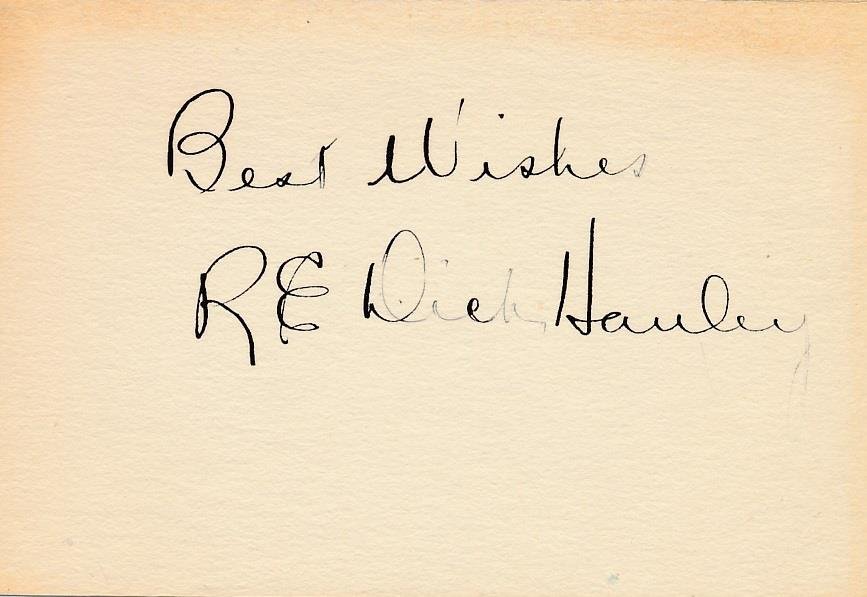 Best Wishes
R E Dick Hanley